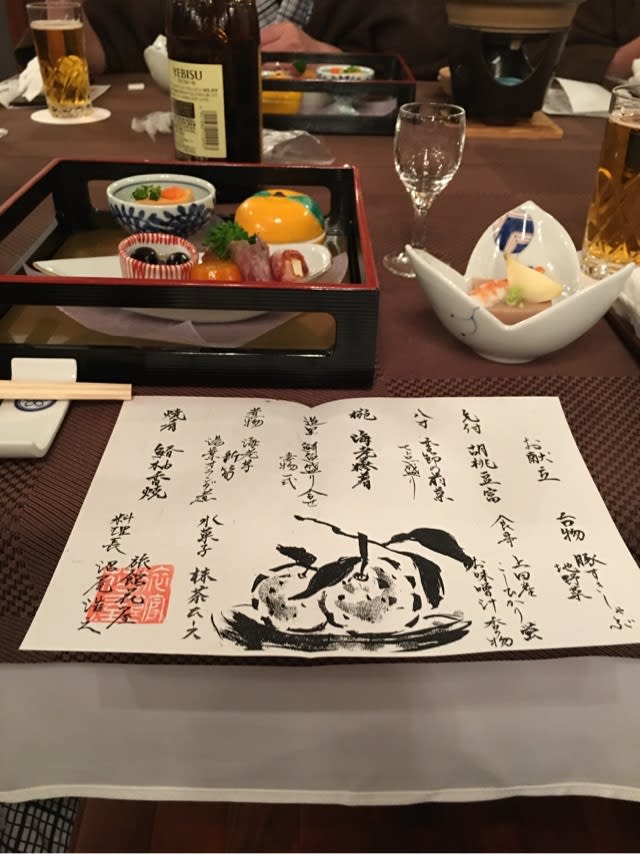 YEBISU
お献立
先付 胡桃豆富
八寸 季節の前菜
盛り
椀 海老
造里 鮮魚盛り合せ
妻物一式
煮物 海老芋
新筍
湯葉オランダ煮
焼肴 鰆柚香焼
台物 豚すきしゃぶ
地野菜
食事 上田産
こしひかり 蛍
お味噌汁 香の物
水菓子 抹茶ムース
旅館花屋
料理長